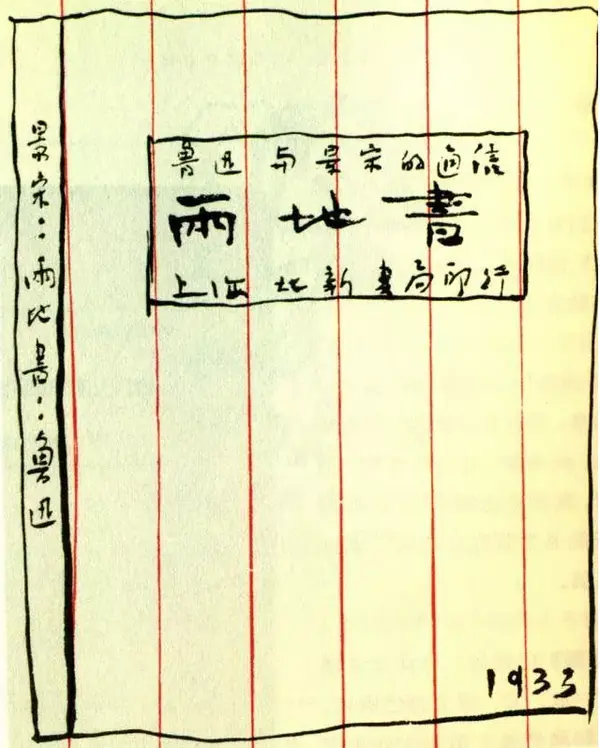 魯迅与景宋的通信
兩地書
上海北新書局印行
景宋:兩地書:魯迅
1933